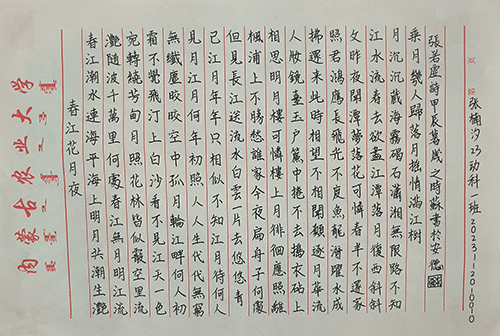 内蒙古农业大学
春江花月夜
春江潮水連海平海上明月共潮生灩
灩隨波千萬里何處春江無月明江流
宛轉繞芳甸月照花林皆似霰空里流
霜不覺飛汀上白沙看不見江天一色
無纖塵皎皎空中孤月輪江畔何人初
見月江月何年初照人人生代代無窮
已江月年年只相似不知江月待何人
但見長江送流水白雲一片去悠悠青
楓浦上不勝愁誰家今夜扁舟子何處
相思明月樓可憐樓上月徘徊應照離
人妝鏡臺玉戶簾中捲不去擣衣砧上
拂還來此時相望不相聞願逐月華流
照君鴻鴈長飛光不度魚龍潛躍水成
文昨夜閑潭夢落花可憐春半不還家
江水流春去欲盡江潭落月復西斜斜
月沉沉藏海霧碣石瀟湘無限路不知
乘月幾人歸落月搖情滿江樹
張若虛詩甲辰暮歲之時蘇書於安德
張楠汐23动科一班